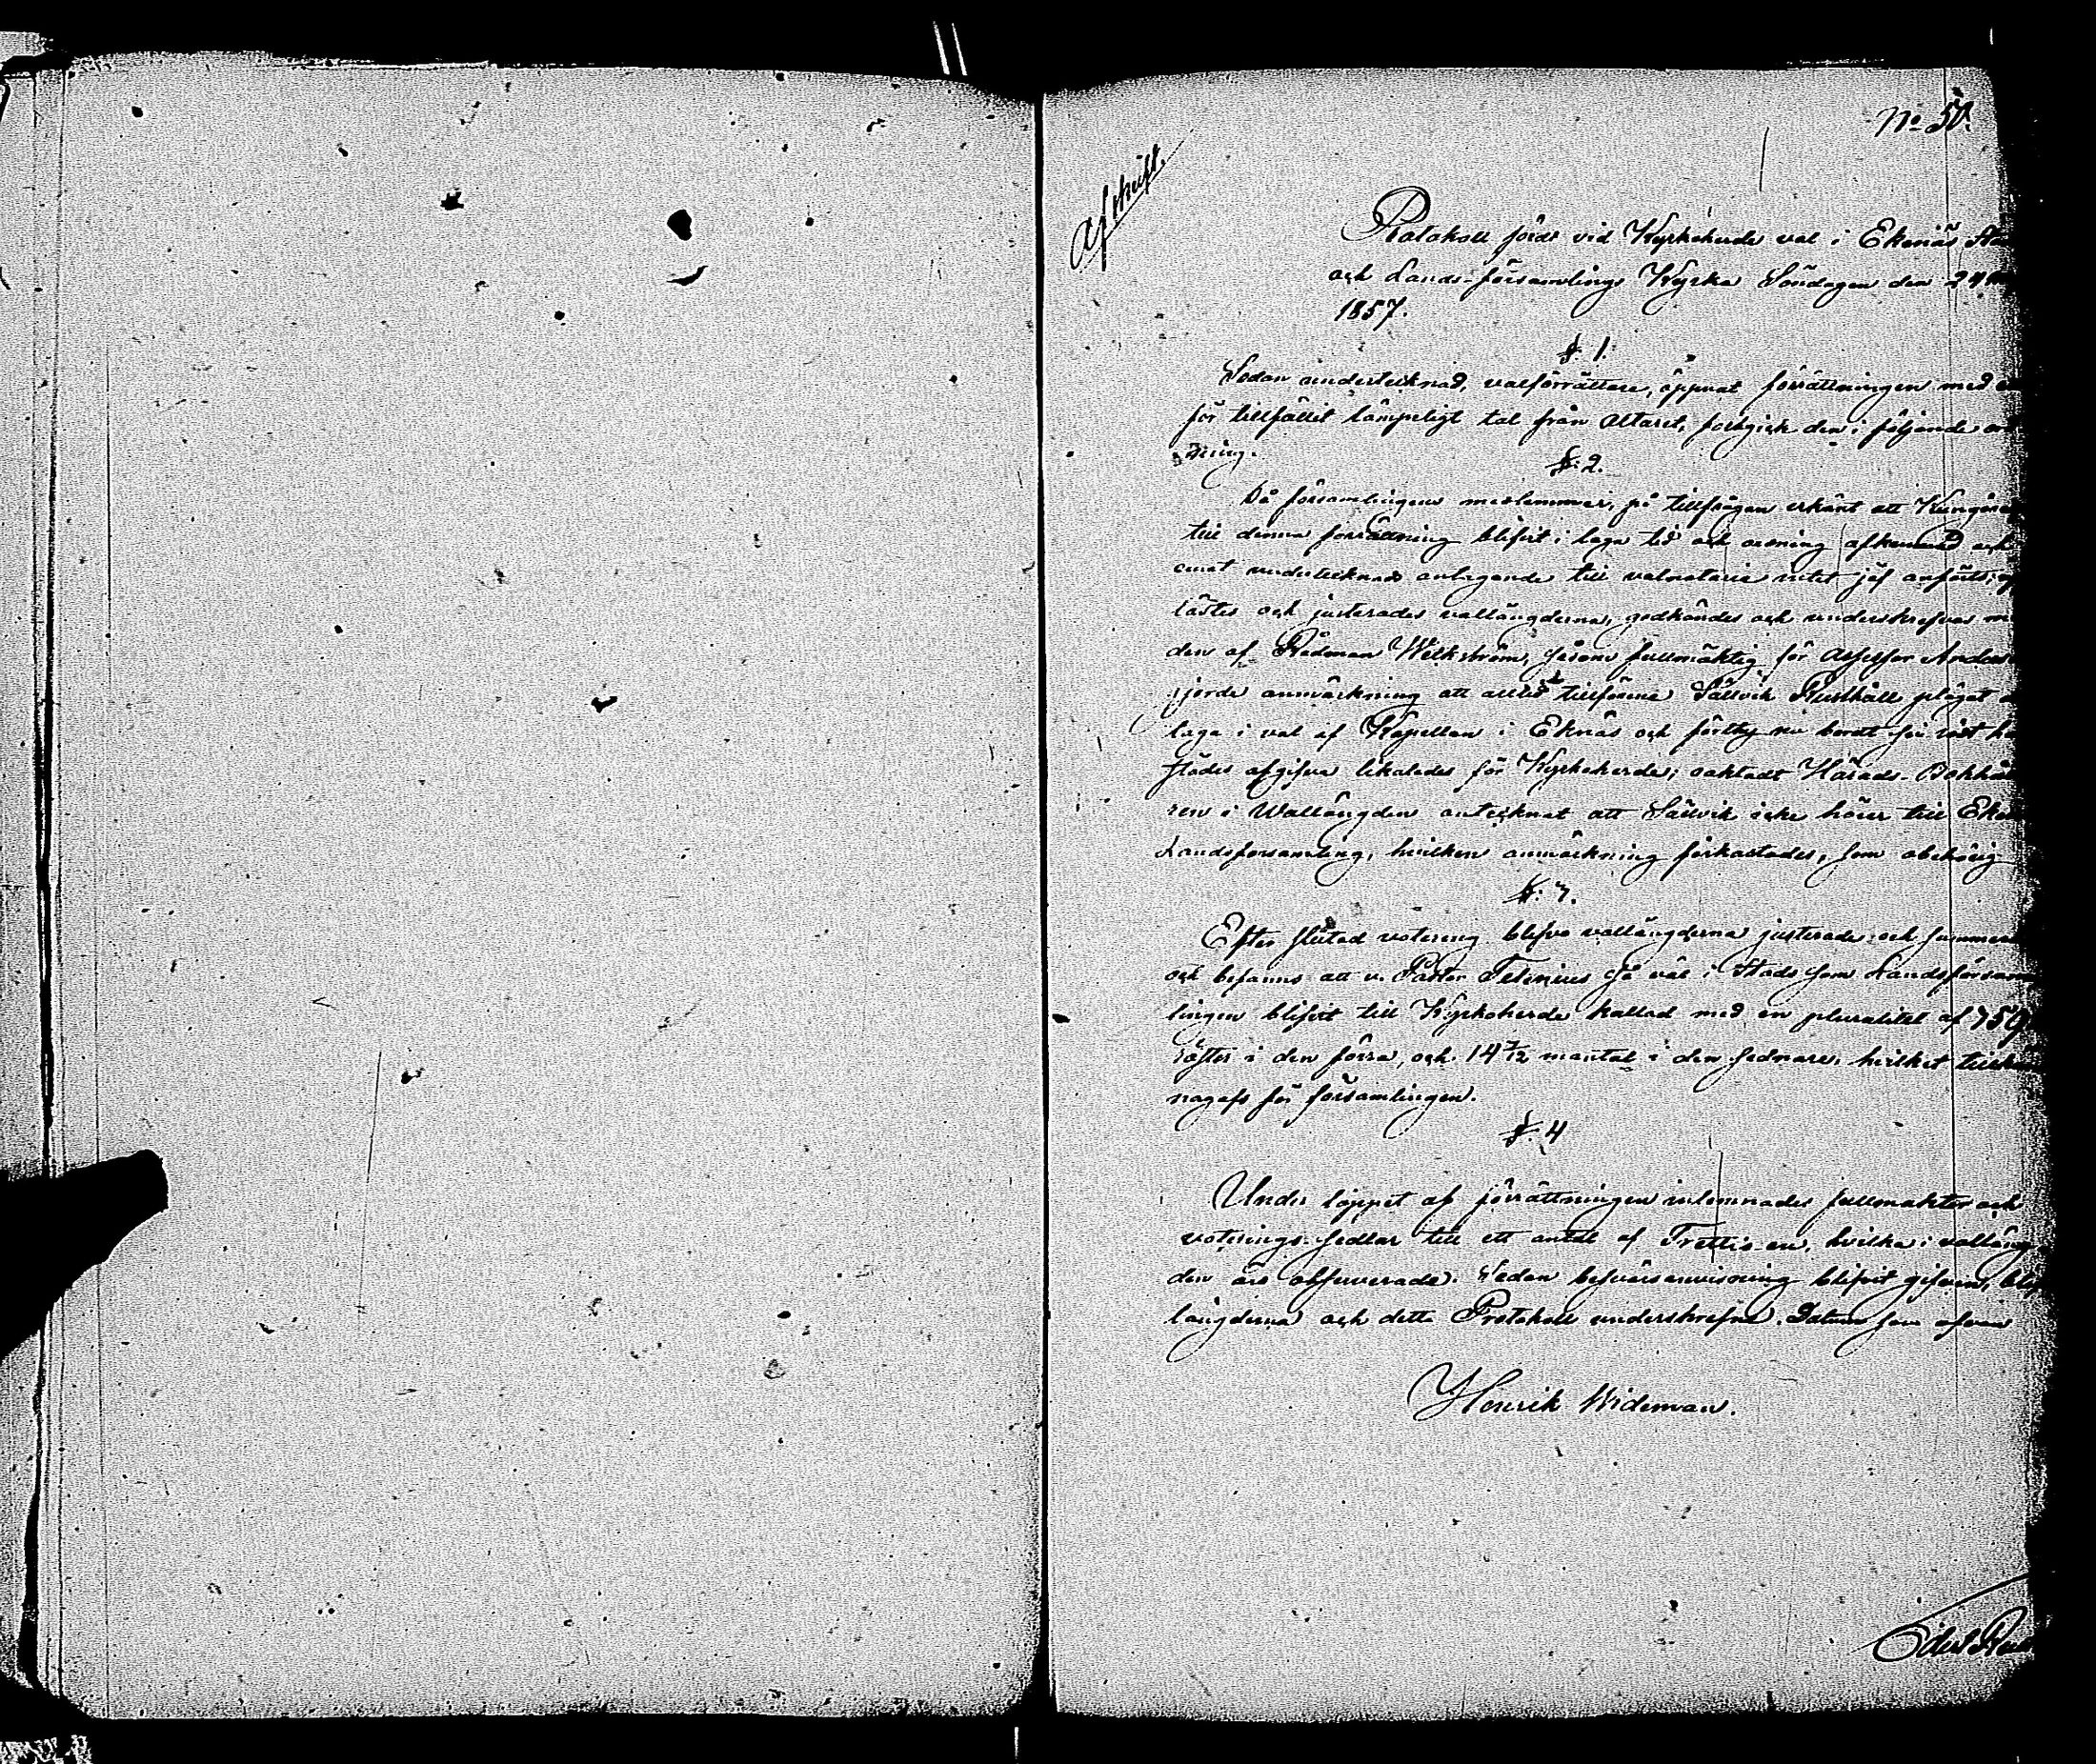 No 57.
Afskrift.
Protokoll fördt vid Kyrkoherde val i Ekenäs
och Lands-församlings Kyrka Söndagen den 24
1857.
§. 1.
Sedan undertecknad, valförrättare, öppnat förrättningen med
för tillfället lämpeligt tal från Altaret, försiggick den i följande
ning.
§. 2.
Då församlingens medlemmar, på tillfrågan erkänt att
till denna förrättning blifvit i laga tid och ordning och
emot undertecknads antagande till valnotarie intet jäf anförts;
lästes och justerades vallängderna, godkändes och underskrefvos
den af Rådman såsom fullmäktig för Assessor
gjorde anmärkning att alltid tillförene Sällvik Rusthåll plägat
taga i val af Kapellan i Eknäs och förthy nu borde sin röst
städes afgifva likaledes för Kyrkoherde; oaktadt Härads-
ren i Wallängden antecknat att Sällvik icke hörer till
Landsforsamling, hvilken anmärkning förkastades, som obehörig
§. 3.
Efter slutad votering blefvo vallängderna justerade och
och befanns att v. Pastor så väl i Stads som
lingen blifvit till Kyrkoherde kallad med en pluralitet af 759
röster i den förra, och 14 7/12 mantal i den sednare, hvilket
nagafs för församlingen.
§. 4
Under loppet af förrättningen inlemnades fullmakter och
voterings-sedlar till ett antal af Trettio-en, hvilka i
den äro observerade. Sedan besvärsanvisning blifvit gifven,
längderna och detta Protokoll underskrefne. Datum som ofvan
Henrik Wideman.